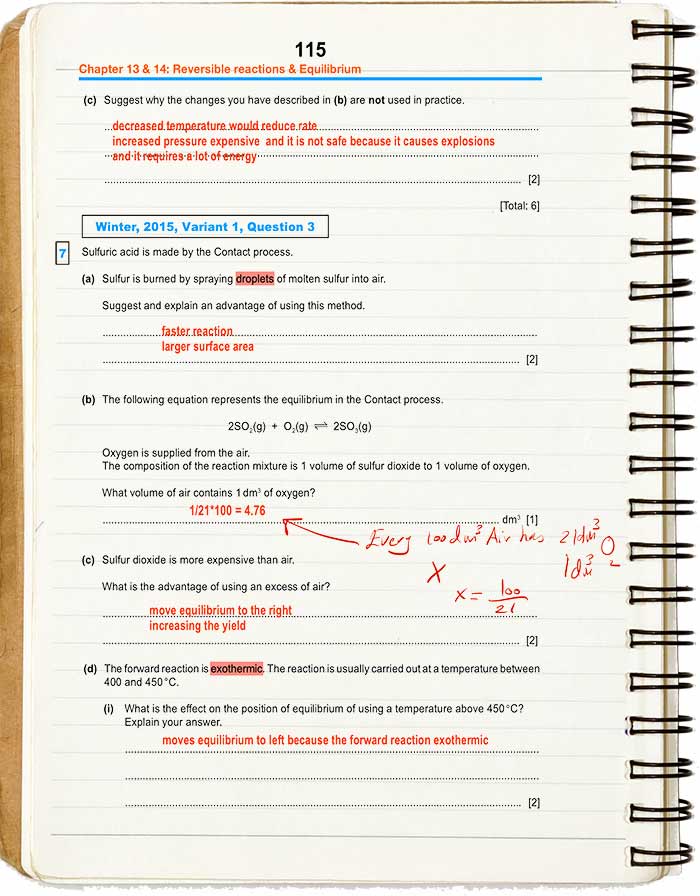 115
Chapter 13 & 14: Reversible reactions & Equilibrium
(c) Suggest why the changes you have described in (b) are not used in practice.
decreased temperature would reduce rate
increased pressure expensive and it is not safe because it causes explosions
and it requires a lot of energy
[2]
[Total: 6]
Winter, 2015, Variant 1, Question 3
7 Sulfuric acid is made by the Contact process.
(a) Sulfur is burned by spraying droplets of molten sulfur into air.
Suggest and explain an advantage of using this method.
faster reaction
larger surface area
[2]
(b) The following equation represents the equilibrium in the Contact process.
2SO₂(g) + O₂(g) ⇌ 2SO₃(g)
Oxygen is supplied from the air.
The composition of the reaction mixture is 1 volume of sulfur dioxide to 1 volume of oxygen.
What volume of air contains 1 dm³ of oxygen?
1/21*100 = 4.76
dm³ [1]
Every 100dm³ Air has 21dm³ O₂
X 1dm³
x = 100/21
(c) Sulfur dioxide is more expensive than air.
What is the advantage of using an excess of air?
move equilibrium to the right
increasing the yield
[2]
(d) The forward reaction is exothermic. The reaction is usually carried out at a temperature between
400 and 450°C.
(i) What is the effect on the position of equilibrium of using a temperature above 450°C?
Explain your answer.
moves equilibrium to left because the forward reaction exothermic
[2]